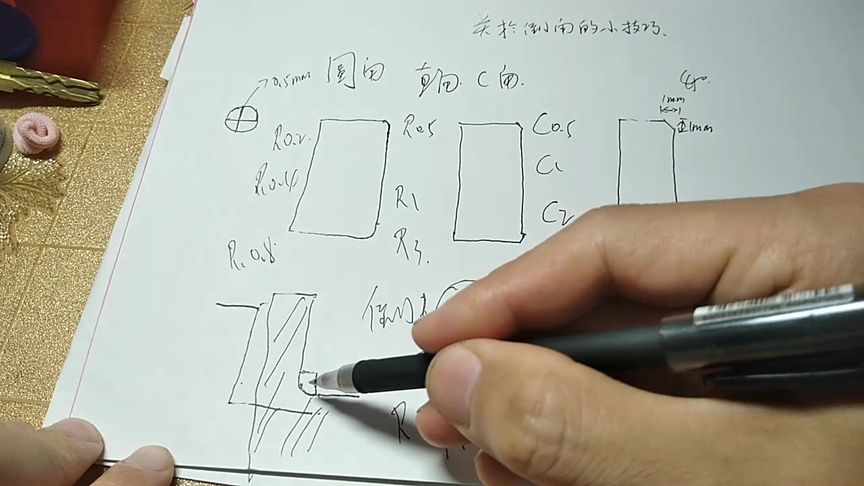 关于倒角的小技巧.
0.5mm 圆角 直角. C角.
1mm
R0.2. R0.5 C0.5 1mm
R0.4 C1
R1 C2
R0.8. R3.
R